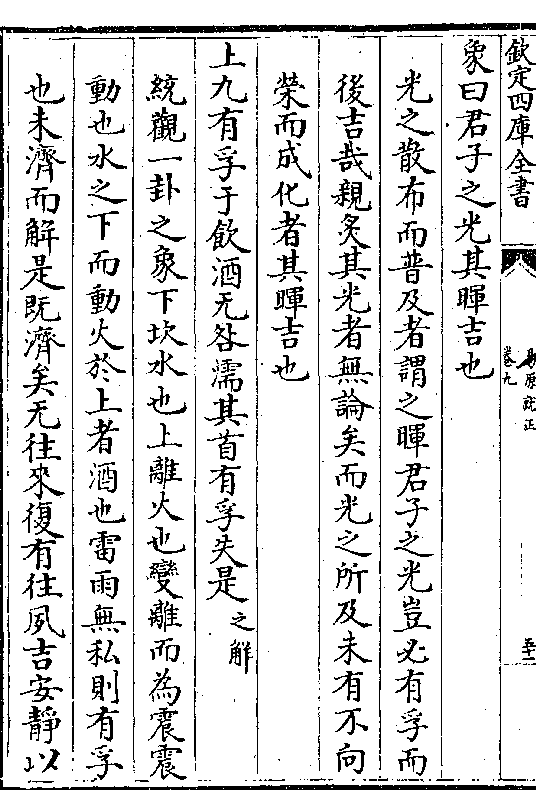 欽定四庫全書
卷九
象曰君子之光其暉吉也
光之散布而普及者謂之暉君子之光豈必有孚而
後吉哉親炙其光者無論矣而光之所及未有不向
榮而成化者其暉吉也
上九有孚于飲酒无咎濡其首有孚失是之解
統觀一卦之象下坎水也上離火也變離而為震震
動也水之下而動火於上者酒也雷雨無私則有孚
也未濟而解是既濟矣无往來復有往夙吉安靜以